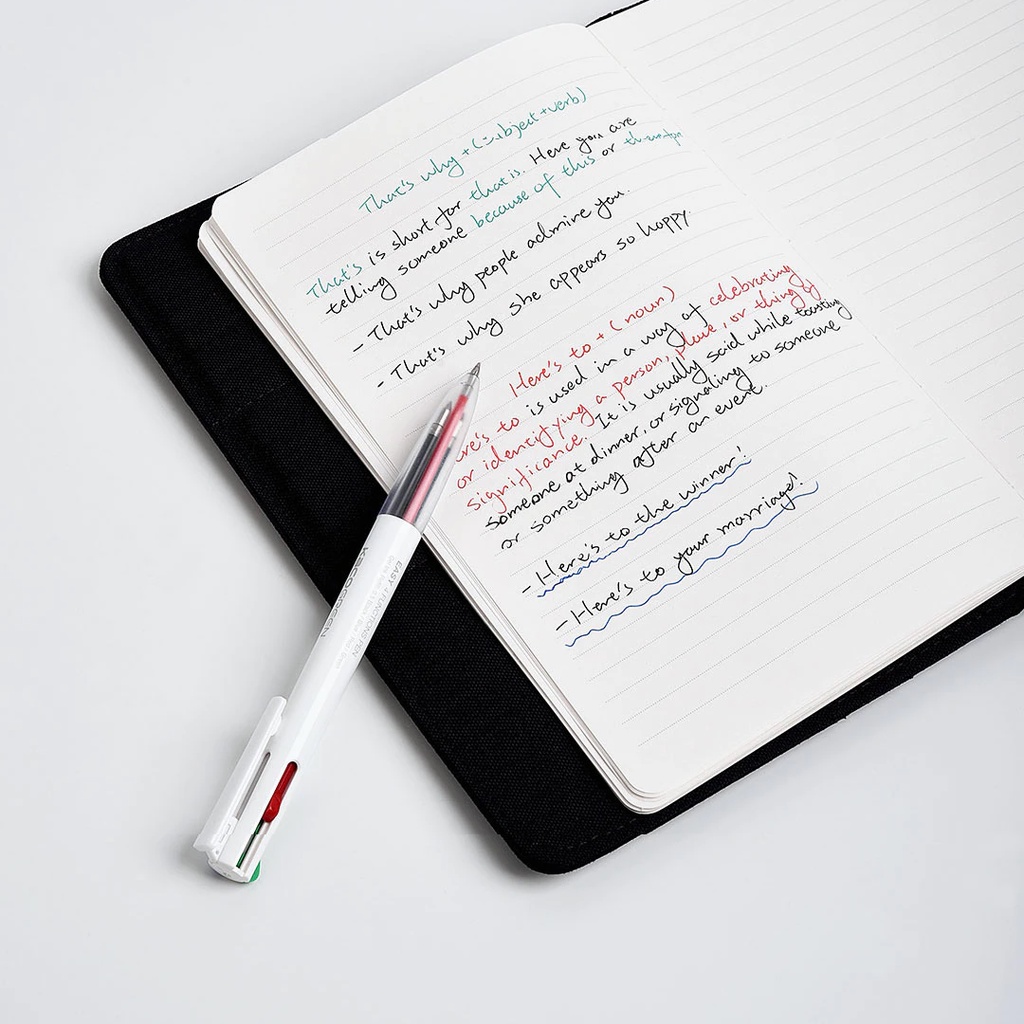 That's why + (subject + verb)
That's is short for that is. Here you are
telling someone because of this or
- That's why people admire you.
- That's why she appears so happy
Here's to + ( noun )
re's to is used in a way of celebrating
or identifying a person, place, or thing of
significance. It is usually said while toasting
someone at dinner, or signaling to someone
or something after an event.
- Here's to the winner!
- Here's to your marriage!
KACOGREEN
EASY 4 FUNCTIONS PEN